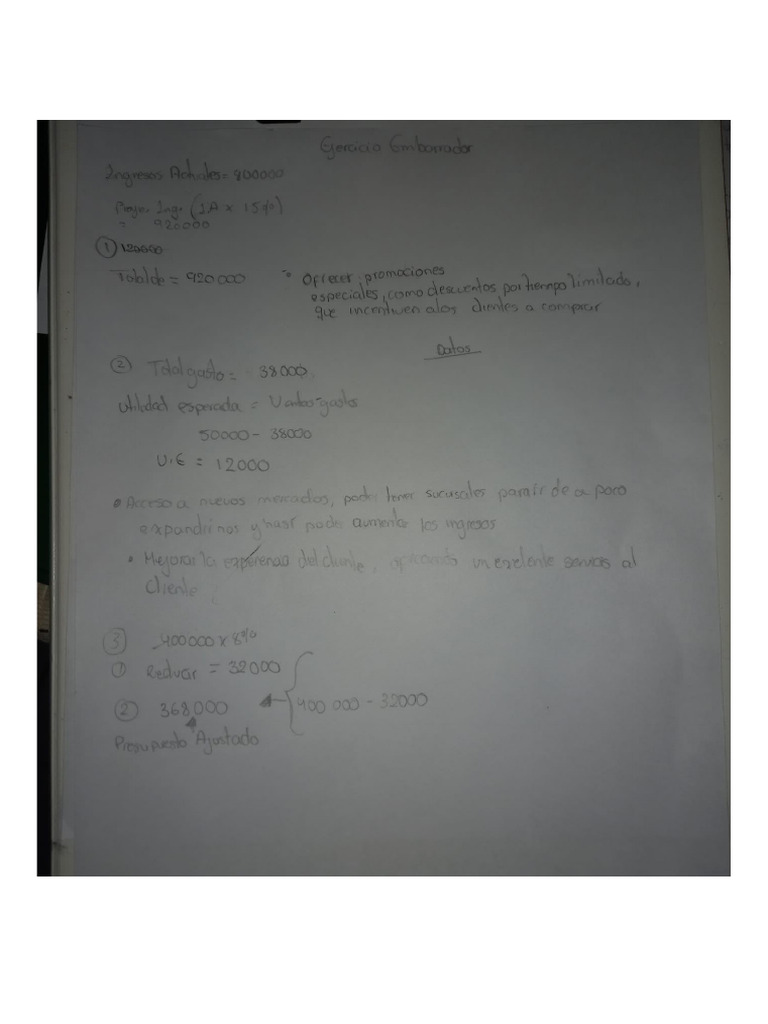 Ejercicio Emborrador
Ingresos Actuales = 800000
Proye. Ing. (IA x 15%)
= 920000
① 120000
Total de = 920 000
• Ofrecer promociones
especiales, como descuentos por tiempo limitado,
que incentiven alos clientes a comprar
Datos
② Total gasto = 38000
Utilidad esperada = Ventas-gastos
50000 - 38000
U.E = 12000
• Acceso a nuevos mercados, poder tener sucusales de a poco
expandirnos y hasi poder aumentar los ingresos
• Mejorar la experiencia del cliente, un exelente servicio al
cliente
③ 400000 x 8%
① Reducir = 32000
② 368000
400 000 - 32000
Presupuesto Ajustado